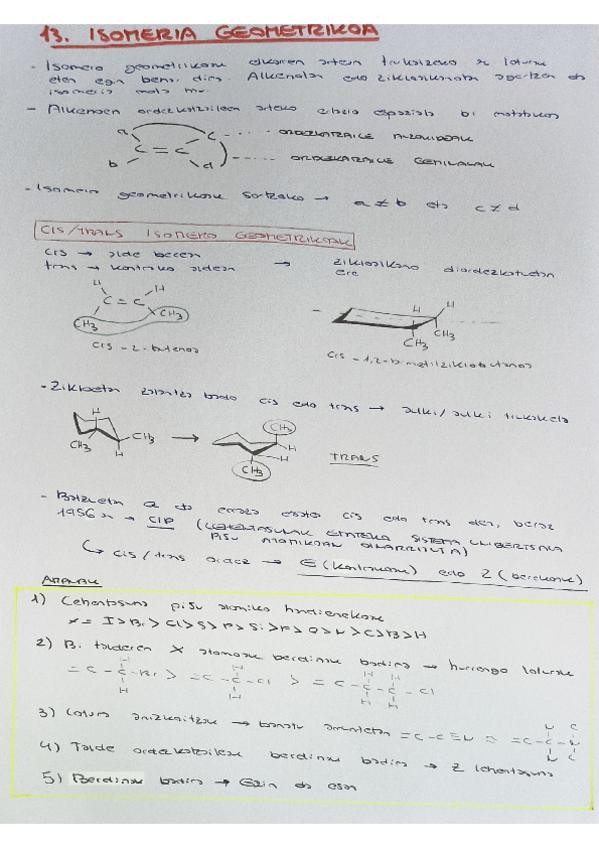 13. ISOMERIA GEOMETRIKOA
- Isomero geometrikoak elkarren artean trukatzeko lotura
eten egin behar dira. Alkenoetan edo zikloalkanoetan agertzen da
isomeria mota hau.
- Alkenoen ordezkatzaileen arteko erlazio espaziala bi motatakoa
a
C = C
c
b
d
ORDEZKATZAILE
ORDEZKATZAILE GEMINALAK
- Isomero geometrikoak sortzeko → a ≠ b eta c ≠ d
CIS/TRANS ISOMERO GEOMETRIKOAK
cis → alde berean
trans → kontrako aldean → zikloalkano diordezkatuetan
ere
H H
C = C
CH3 CH3
cis-2-butenoa
H H
CH3 CH3
cis-1,2-dimetilziklobutanoa
- Zikloetan zalantza bada cis edo trans → aulki/aulki trukaketa
H
CH3 CH3
H
→
CH3
H
H
CH3
TRANS
- Batzuetan ez da erraza esatea cis edo trans den, beraz
1956 n → CIP (LEHENTASUNAK EMATEKO SISTEMA UNIBERTSALA
PISU ATOMIKOAN OINARRITUTA)
↳ cis/trans ordez → E (kontrakoak) edo Z (berekoak)
ARAUAK
1) Lehentasuna pisu atomiko handienekoak
x = I > Br > Cl > S > P > Si > F > O > N > C > B > H
2) Bi talderen X atomoak berdinak badira → hurrengo loturak
H H H H
= C - C - Br > = C - C - Cl > = C - C - C - Cl
H H H H
3) Lotura anizkoitzak → banatu = C - C ≡ N
N C
= C - C - N
N C
4) Talde ordezkatzaileak berdinak badira → Z lehentasuna
5) Berdinak badira → Ezin da esan